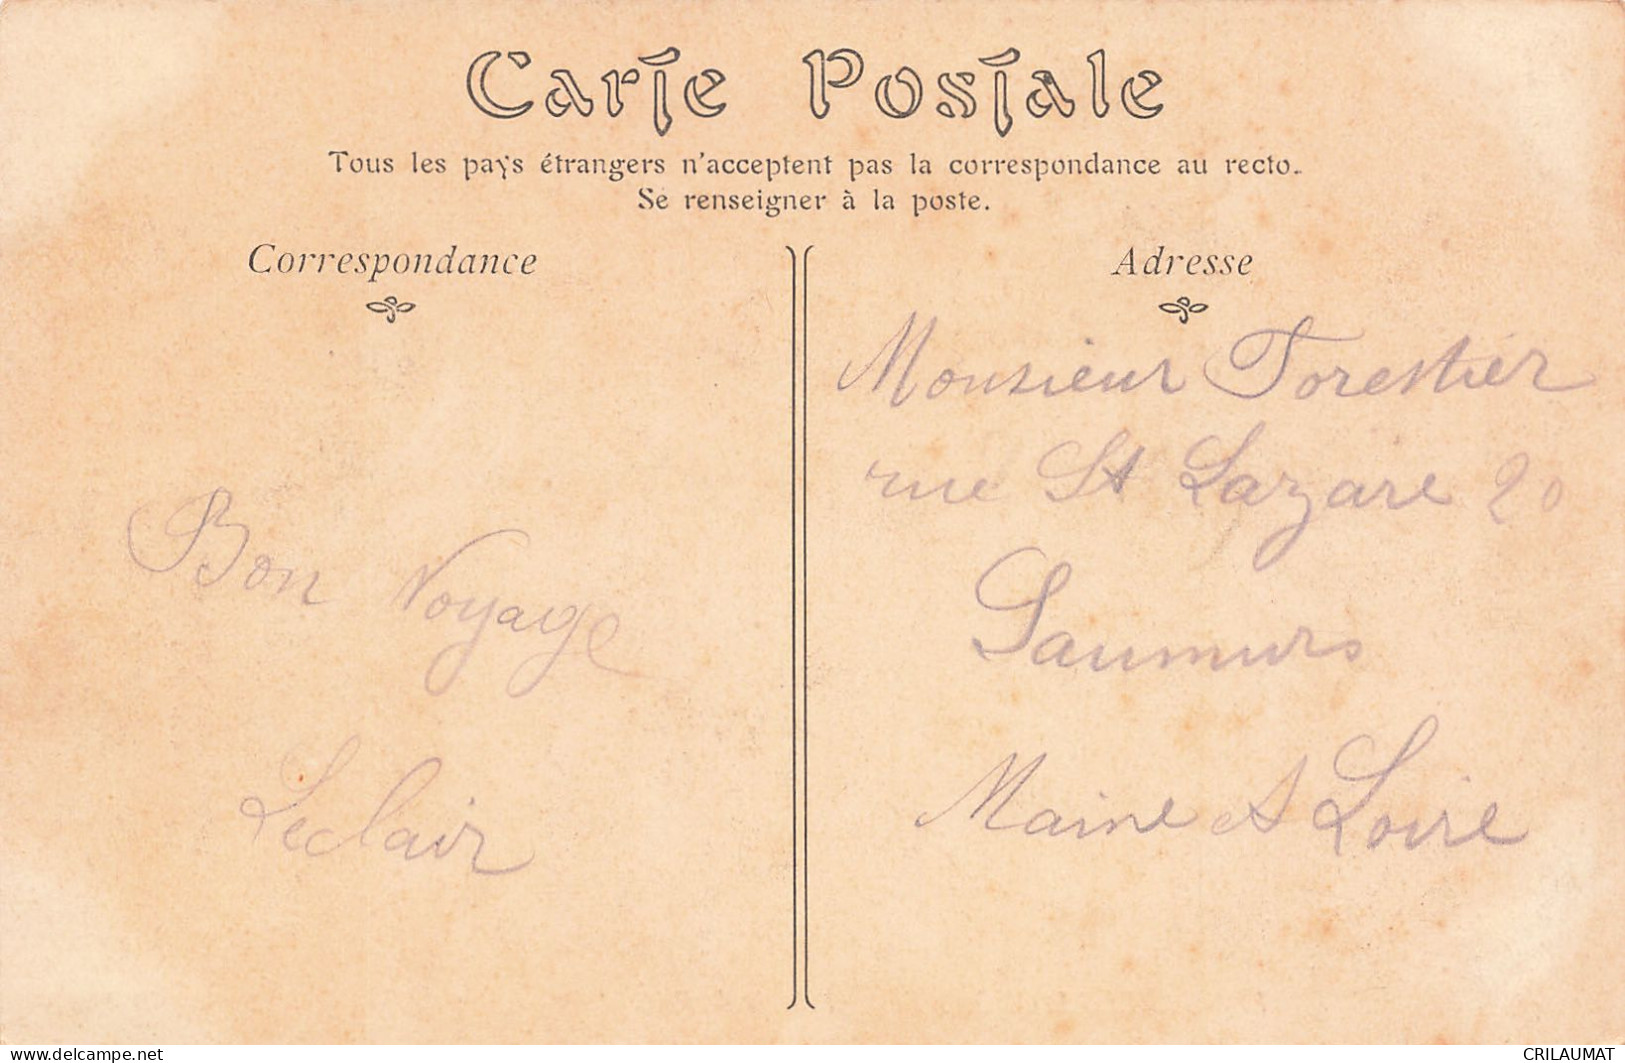 Carte Postale
Tous les pays étrangers n'acceptent pas la correspondance au recto.
Se renseigner à la poste.
Correspondance
Bon Voyage
Leclair
Adresse
Monsieur Forestier
rue St Lazare 20
Saumurs
Maine et Loire
www.delcampe.net
CRILAUMAT